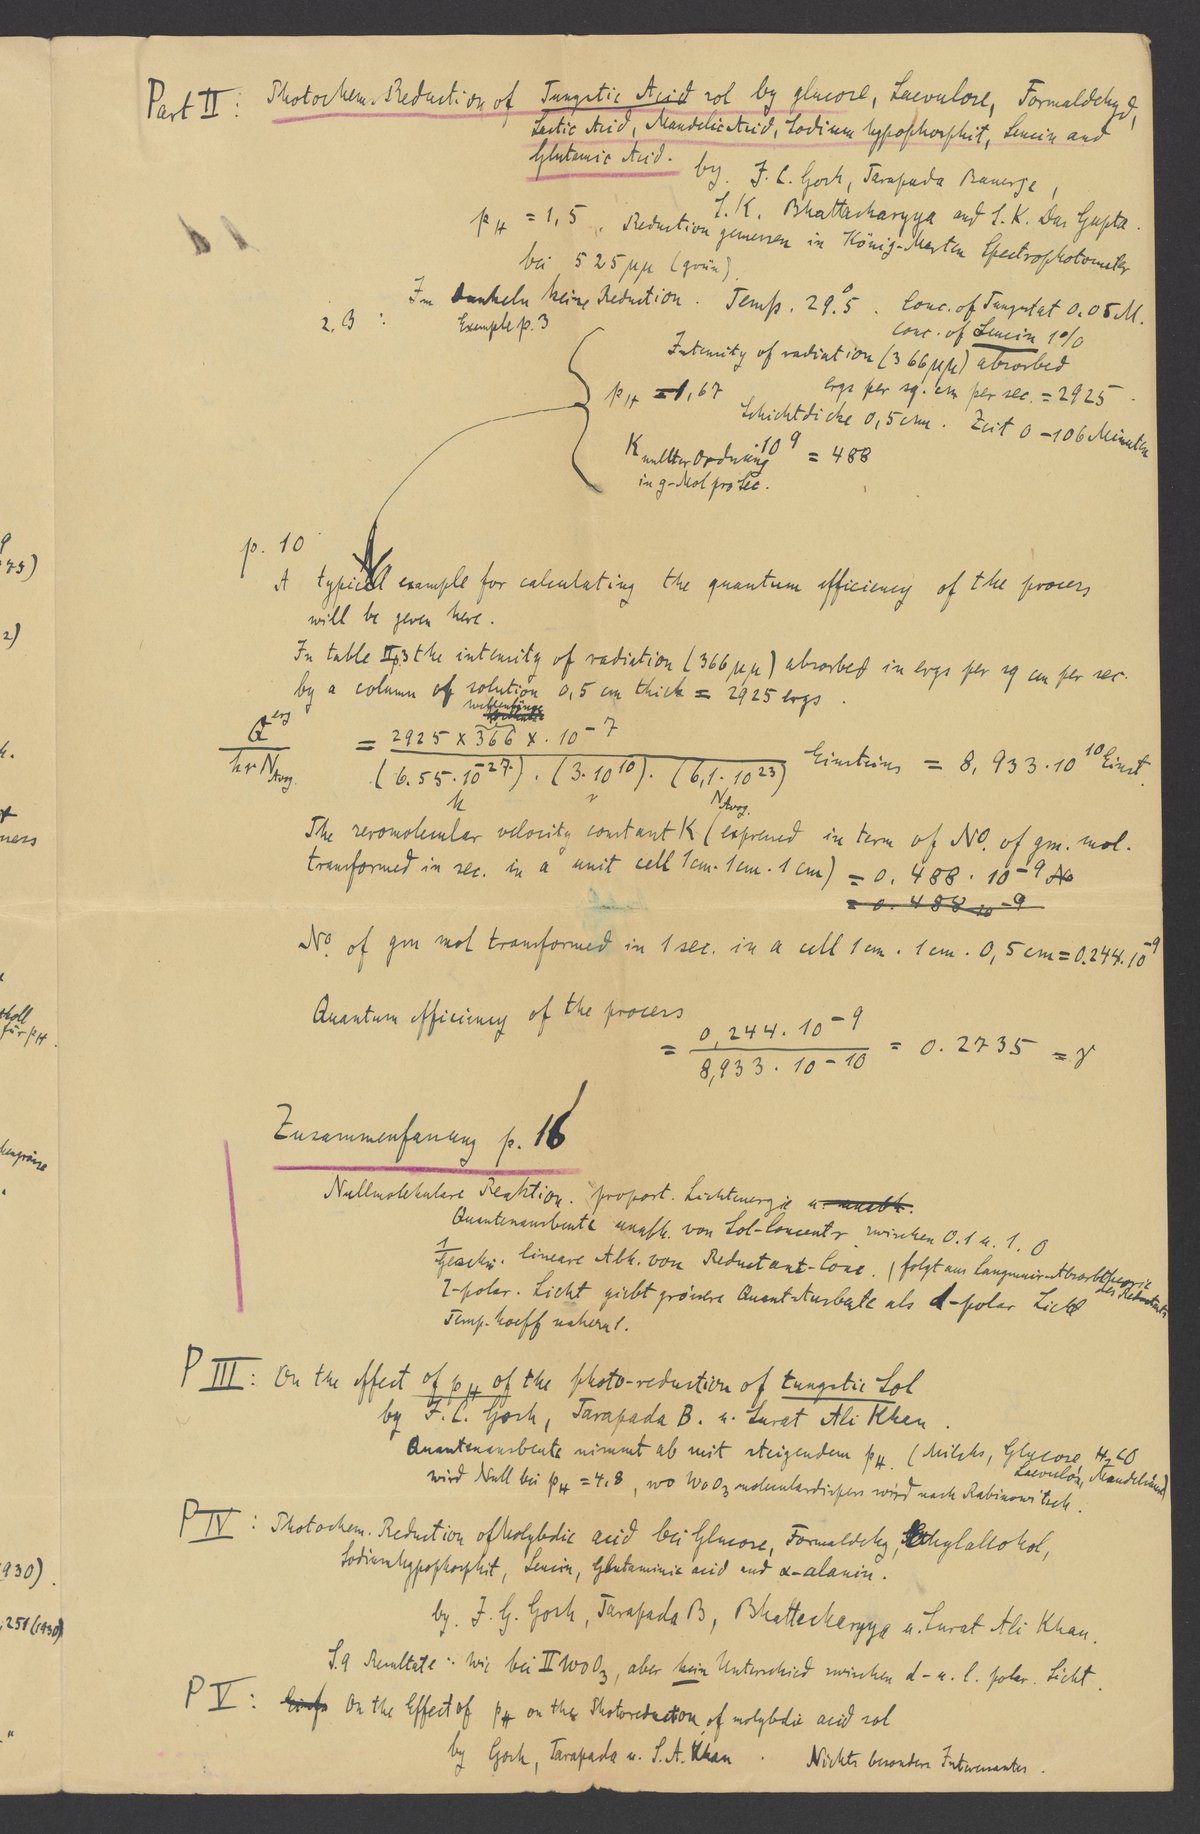 Part II : Photochem. Reduction of Tungstic Acid sol by glucose, Laevulose, Formaldehyd,
Lactic Acid, Mandelic Acid, Sodium hypophosphit, Leucin and
Glutamic Acid.
by J. C. Gosh, Tarapada Banerje,
S. K. Bhattacharyya and S. K. Das Gupta.
pH = 1,5 . Reduction gemessen in König-Marten Spectrophotometer
bei 525 μμ (grün).
Im Dunkeln keine Reduction. Temp. 29°.5 . Conc. of Tungstat 0.05 M.
z. B : Example p. 3
conc. of Leucin 1%
Intensity of radiation (366 μμ) absorbed
ergs per sq. cm per sec. = 2925 .
pH = 1,67
Schichtdicke 0,5 cm. Zeit 0 – 106 Minuten
K nullter Ordnung · 10 9 = 488
in g-Mol pro Sec.
p. 10
A typical example for calculating the quantum efficiency of the process
will be geven here.
In table II,3 the intensity of radiation (366 μμ) absorbed in ergs per sq cm per sec.
by a column of solution 0,5 cm thick = 2925 ergs .
Wellenlänge
Q erg / hν N Avog. = 2925 x 366 x . 10 –7 / (6.55 · 10 –27) · (3 · 10 10) · (6,1 · 10 23) Einsteins = 8,933 · 10 10 Einst.
h ν N Avog.
The zeromolecular velocity constant K (expressed in term of No. of gm. mol.
transformed in sec. in a unit cell 1 cm · 1 cm · 1 cm) = 0.488 · 10 –9 No
= 0.488 10 –9
No of gm mol transformed in 1 sec. in a cell 1 cm · 1 cm · 0,5 cm = 0.244 · 10 –9
Quantum efficiency of the process
= 0,244 · 10 –9 / 8,933 · 10 –10 = 0.2735 = γ
Zusammenfassung p. 16
Nullmolekulare Reaktion. proport. Lichtenergie u. unabh.
Quantenausbeute unabh. von Sol-Concentr. zwischen 0.1 u. 1.0
1 / Geschw. lineare Abh. von Reductant-Conc. (folgt aus Langmuir-Absorbtheorie
des Reductants
l-polar. Licht giebt grössere Quant-Ausbeute als d-polar Licht
Temp-koeff nahe 1.
P III : On the effect of pH of the photo-reduction of tungstic Sol
by J. C. Gosh, Tarapada B. u. Surat Ali Khan .
Quantenausbeute nimmt ab mit steigendem pH. (Milchs, Glycose, H2CO
Laevulos, Mandelsäure)
wird Null bei pH = 4,8 , wo WoO3 moleculardispers wird nach Rabinowitsch.
P IV : Photochem. Reduction of Molybdic acid bei Glucose, Formaldehy, Ethylalkohol,
Sodiumhypophosphit, Leucin, Glutaminic acid and α-alanin.
by J. G. Gosh, Tarapada B, Bhattacharyya u. Surat Ali Khan.
S. 9 Resultate : wie bei II WoO3, aber kein Unterschied zwischen d- u. l. polar. Licht .
P V : On the Effect of pH on the Photoreduction of molybdic acid sol
by Gosh, Tarapada u. S. A. Khan . Nichts besonders Interessantes .
75)
2)
ness
für pH.
1930).
, 251 (1930)